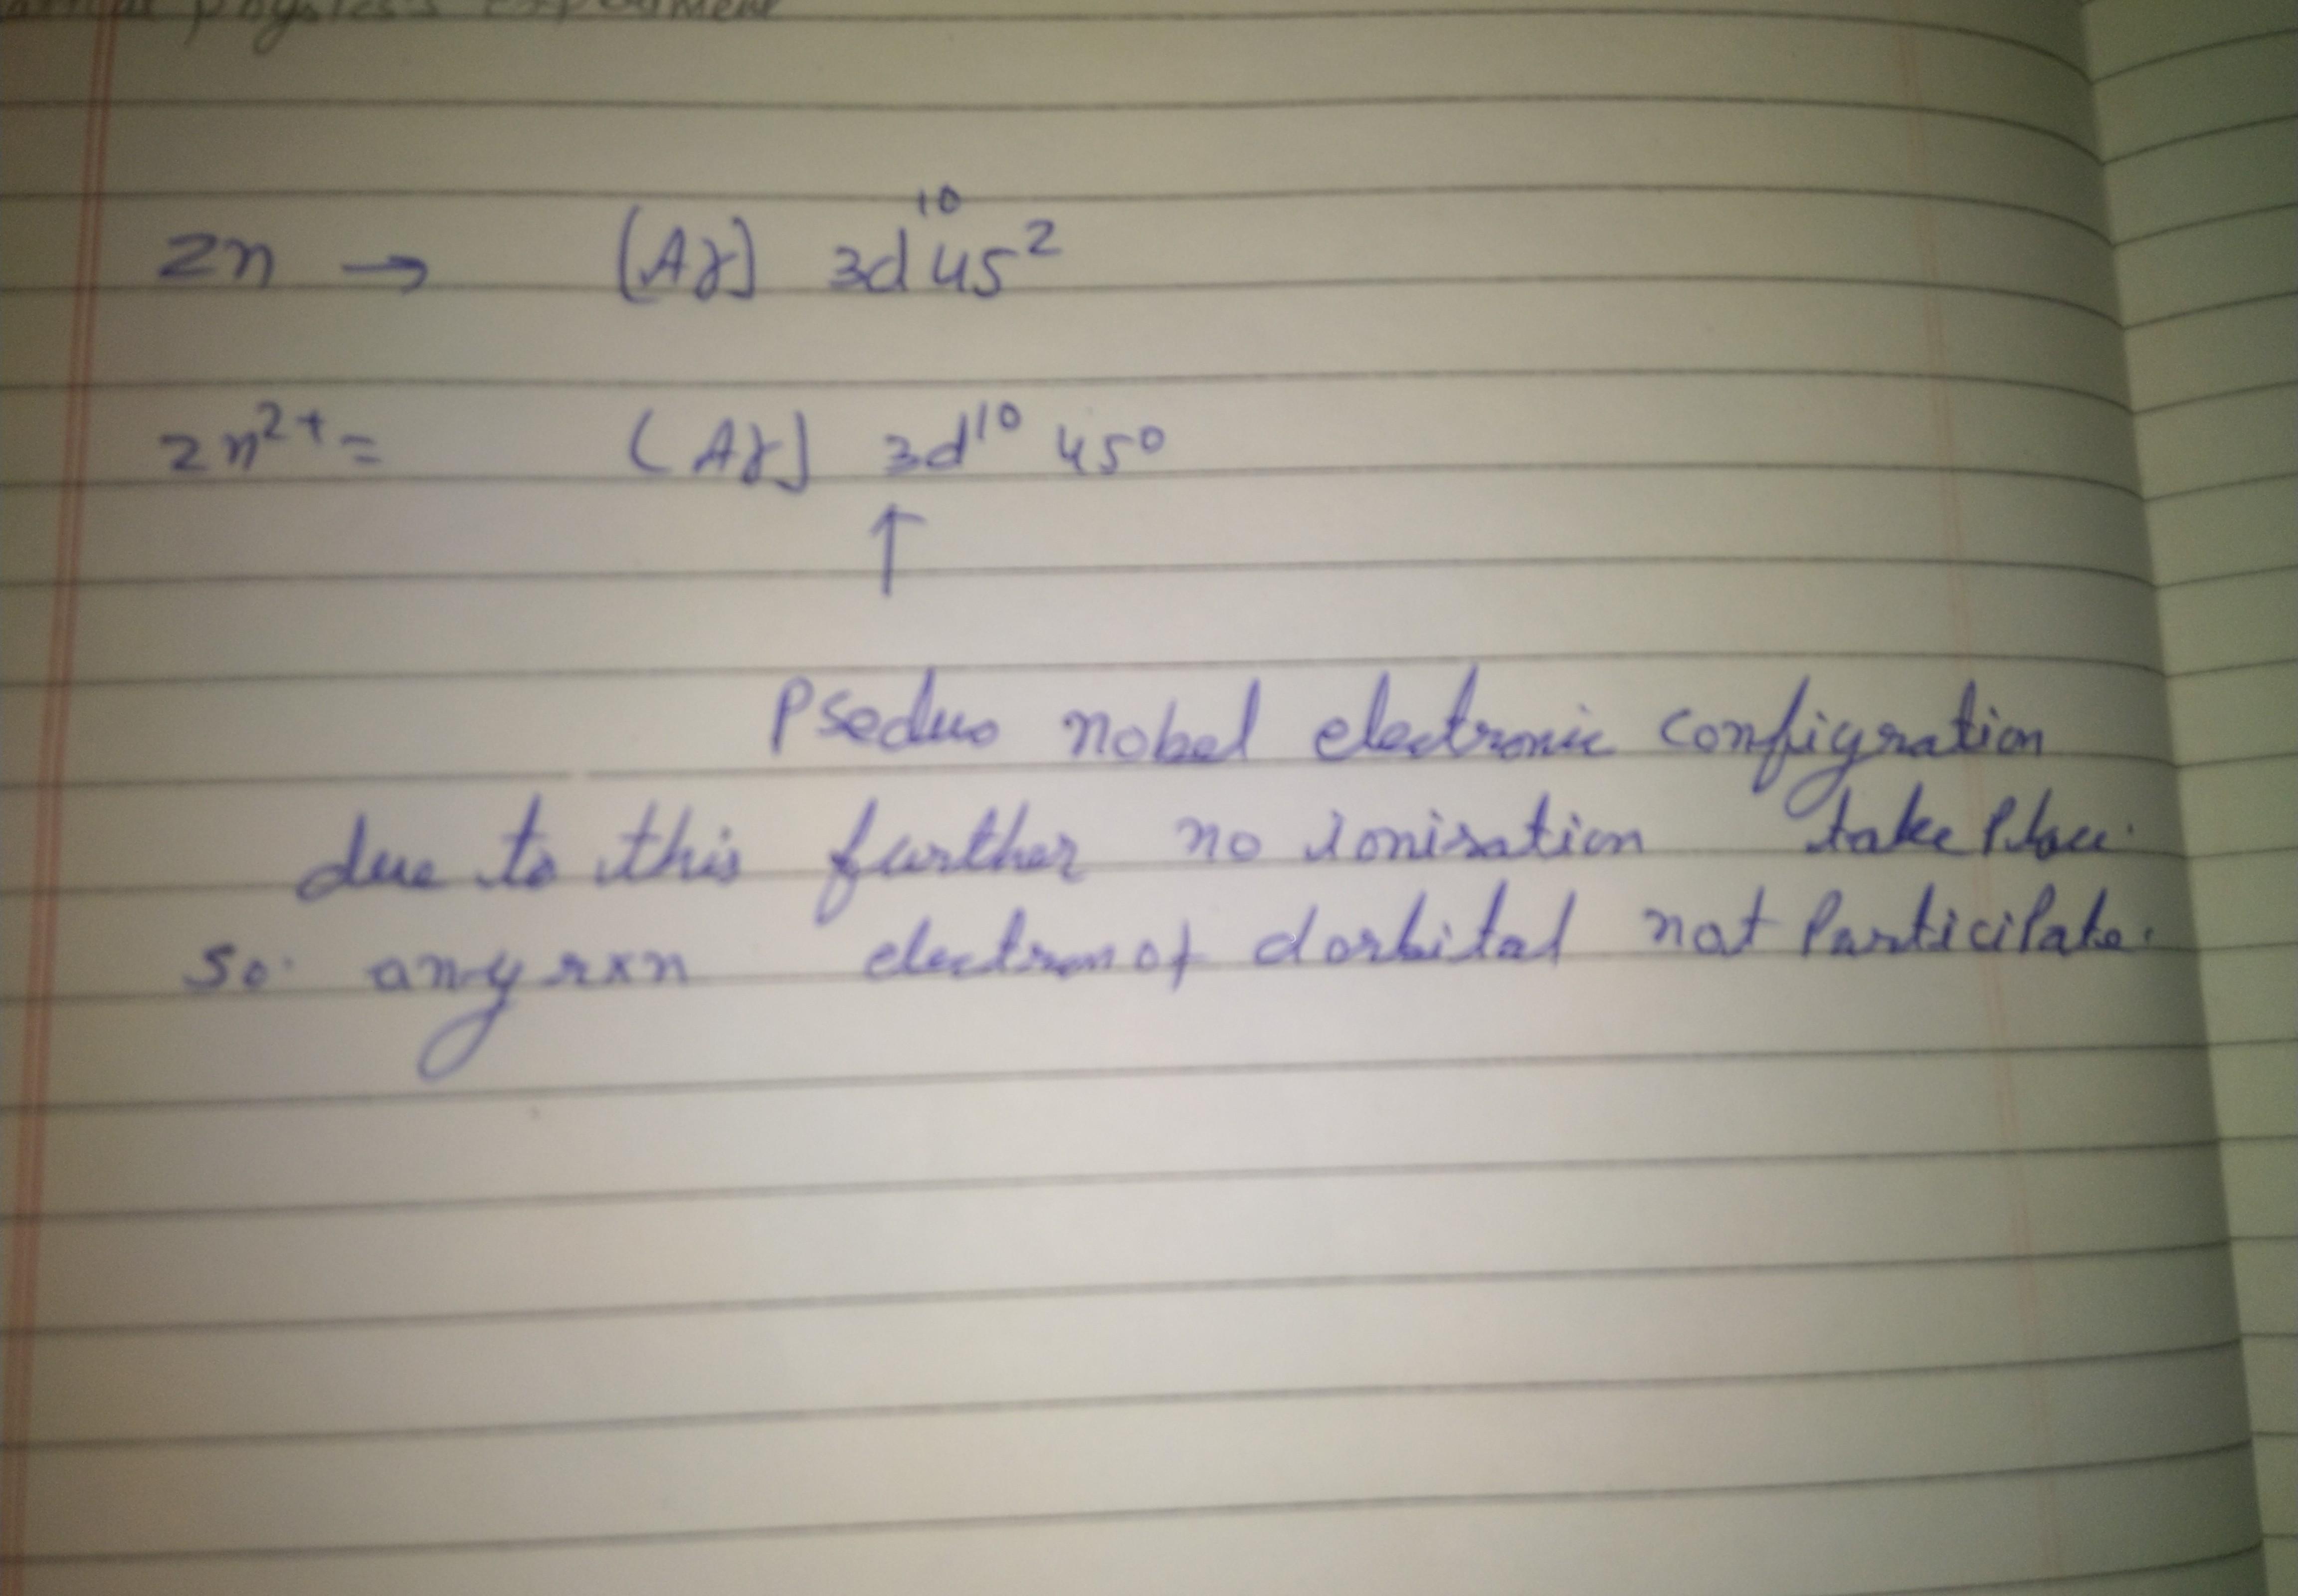 physics experiment
Zn → [Ar] 3d¹⁰ 4s²
Zn²⁺ = [Ar] 3d¹⁰ 4s⁰
↑
Pseduo nobel electronic configration
due to this further no ionisation take place.
So. any rxn electron of d orbital not Participate.